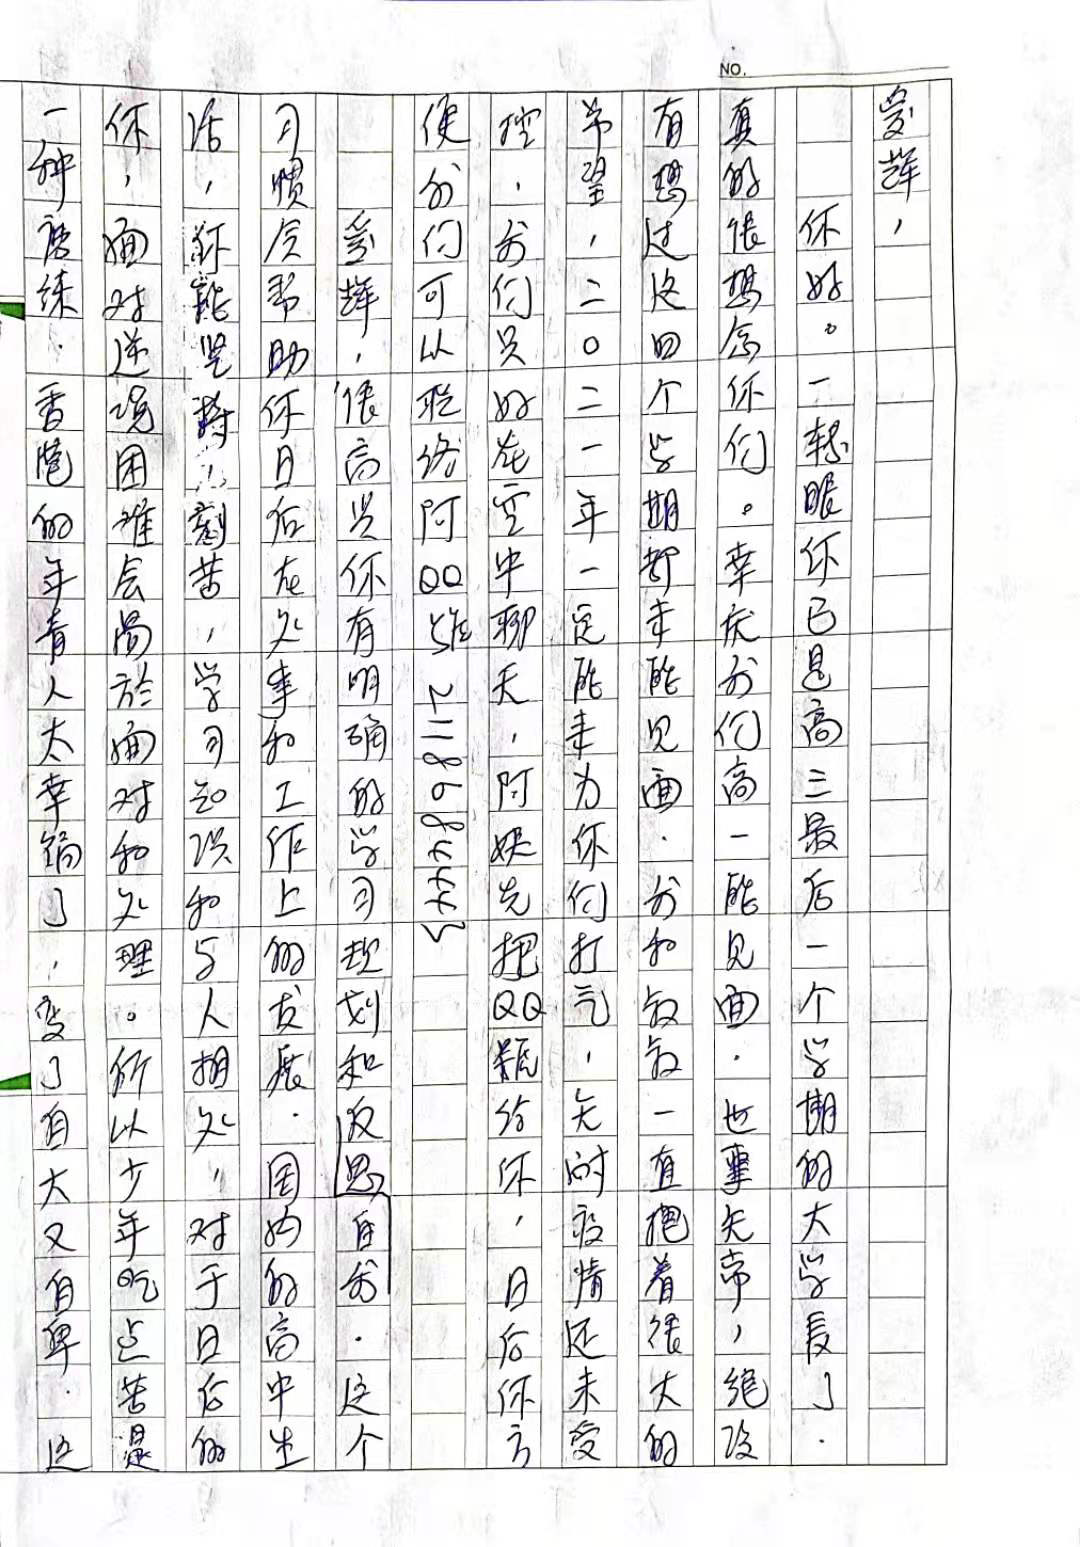 爱辉，
你好。一转眼你已是高三最后一个学期的大学長了.
真的很想念你们。幸庆我们高一能见面.世事无常，絕没
有想过这四个学期都未能见面.我和敏敏一直抱着很大的
希望，二〇二一年一定能来为你们打气，无时疫情还未受
控，我们只好在空中聊天，阿姨先把QQ號给你，日后你方
便我们可以联络阿QQ號
爱辉，很高兴你有明确的学习规划和反思自我.这个
习惯会帮助你日后在处事和工作上的发展.国内的高中生
活，你能坚持，刻苦，学习知识和与人相处，对于日后的
你，面对逆境困难会易於面对和处理。所以少年吃点苦是
一种磨练.香港的年青人太幸福了，变了自大又自卑.这